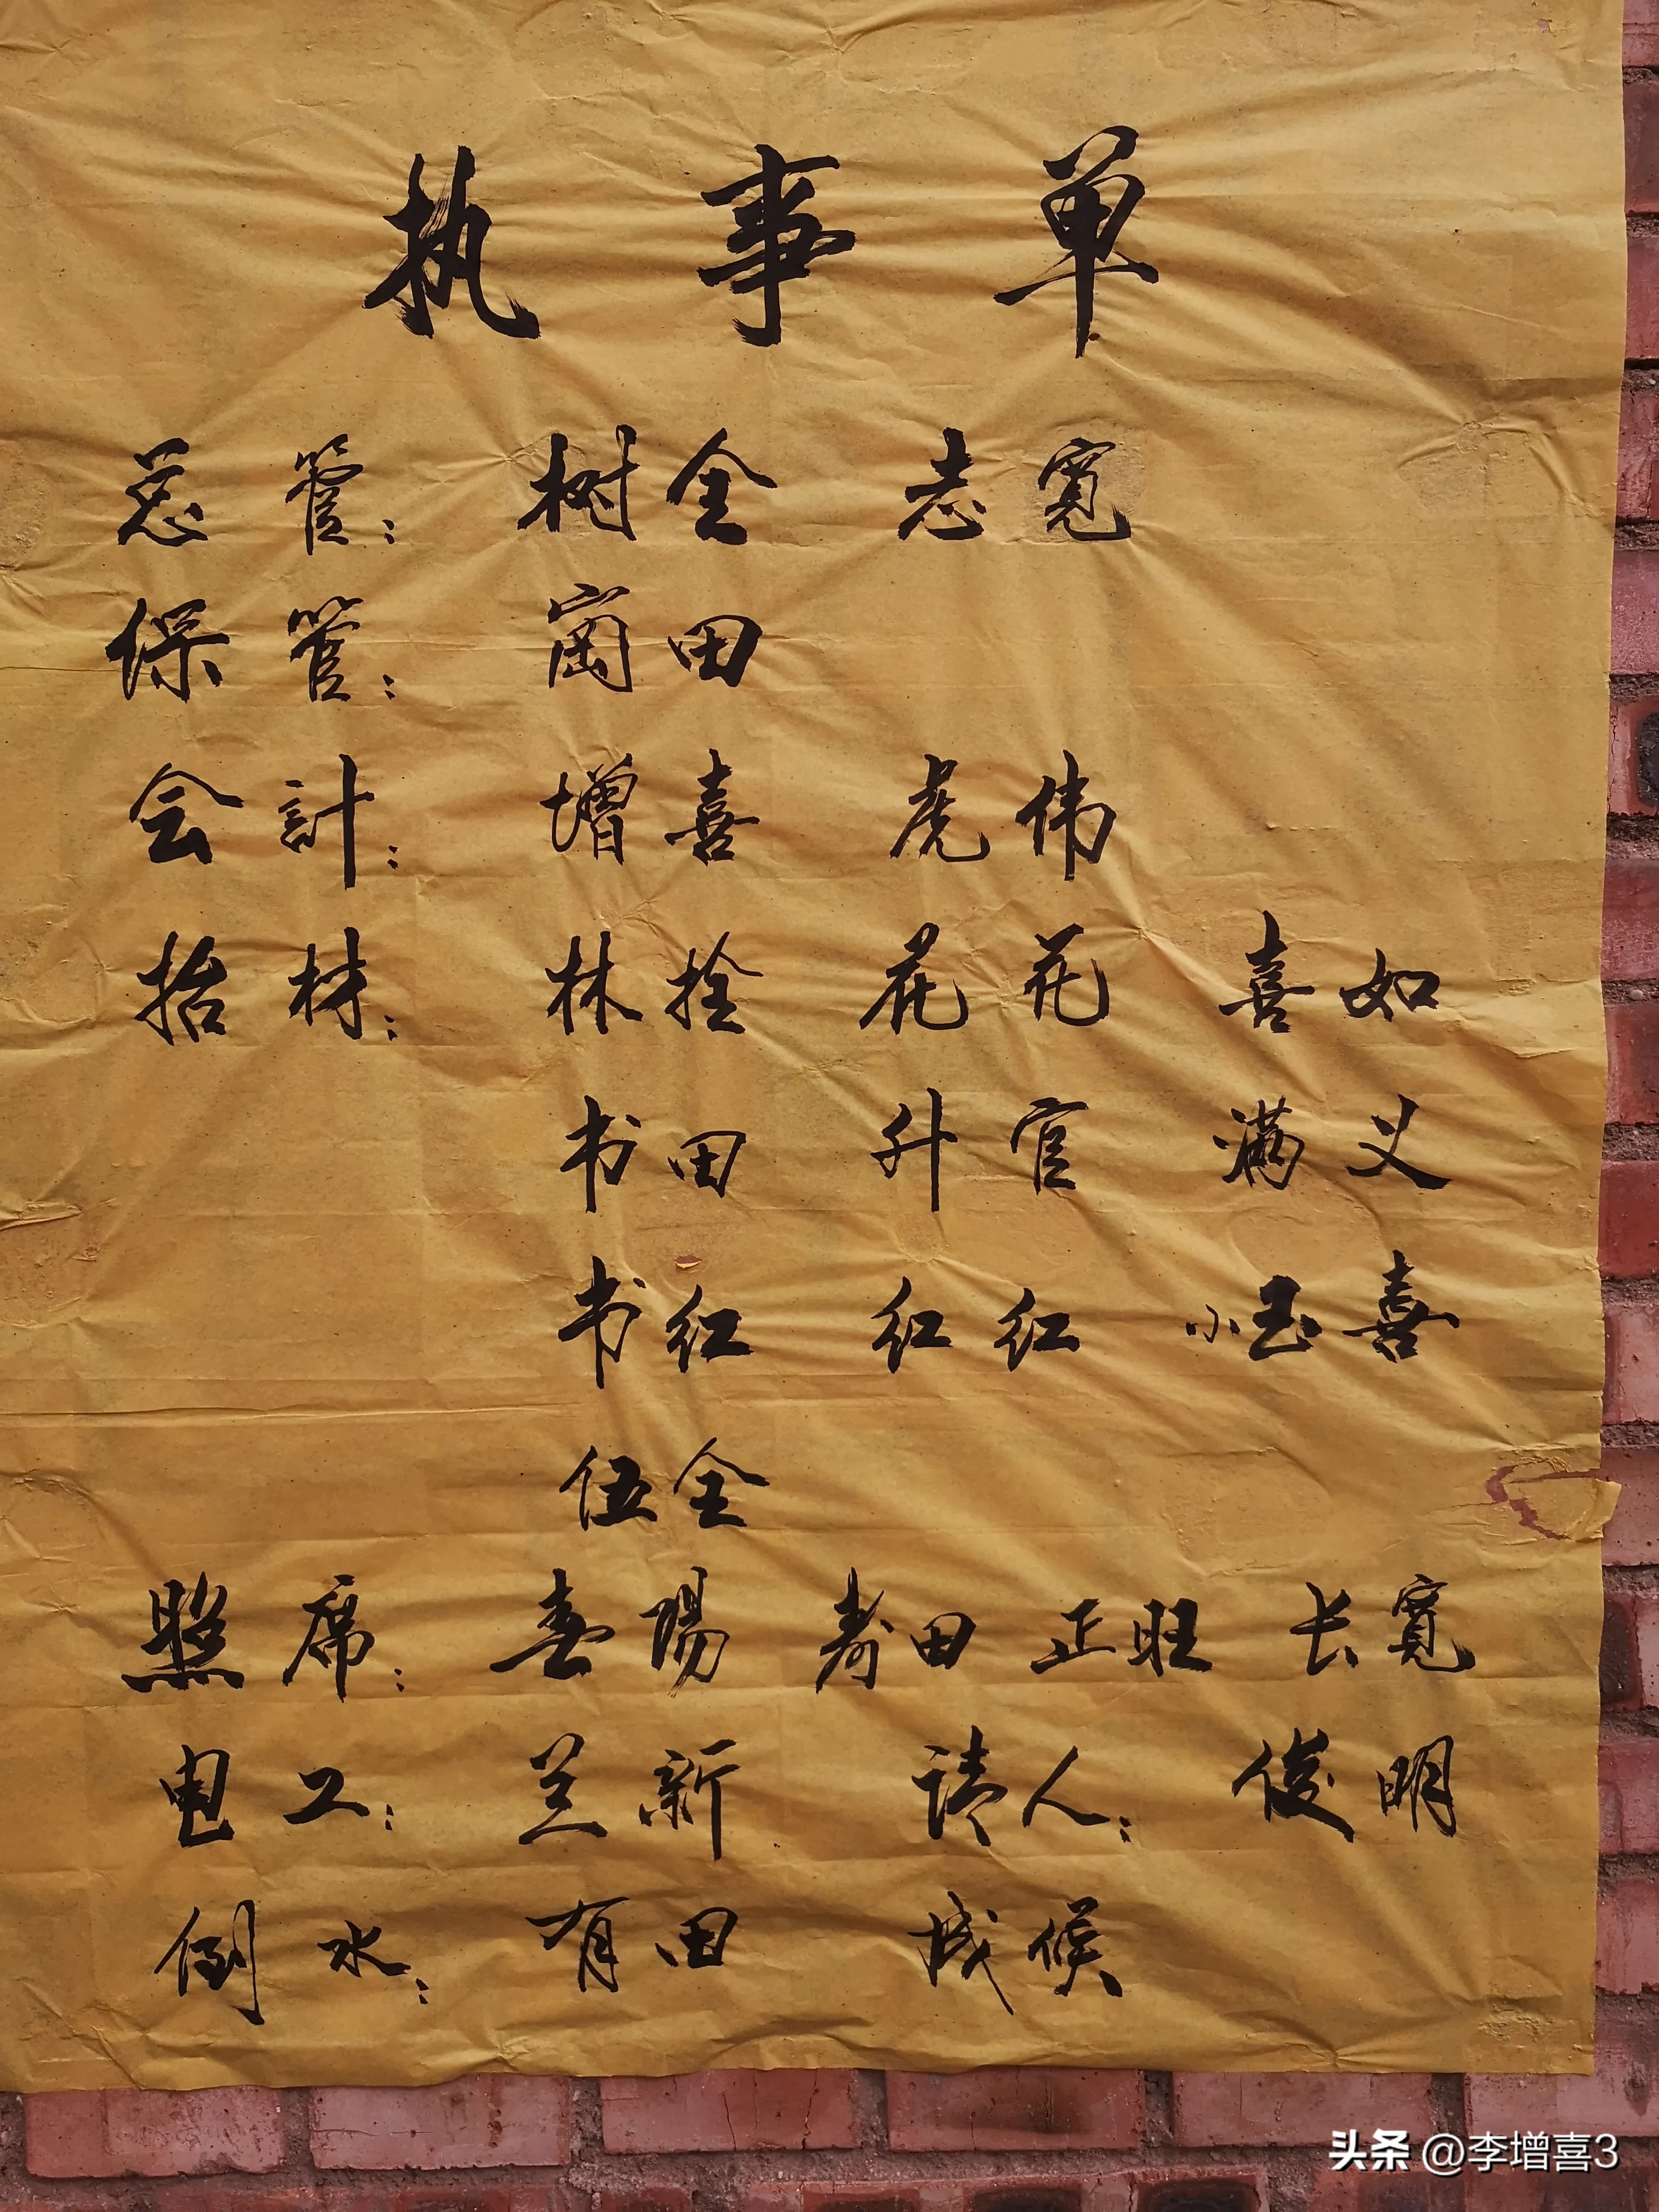 执事单
总管：树全 志寬
保管：窗田
会計：增喜 虎伟
抬材：林拴 花花 喜如
书田 升官 满义
书红 红红 小玉喜
伍全
照席：春陽 寿田 正旺 长寬
电工：兰新 请人：俊明
倒水：有田 成候
头条 @李增喜3